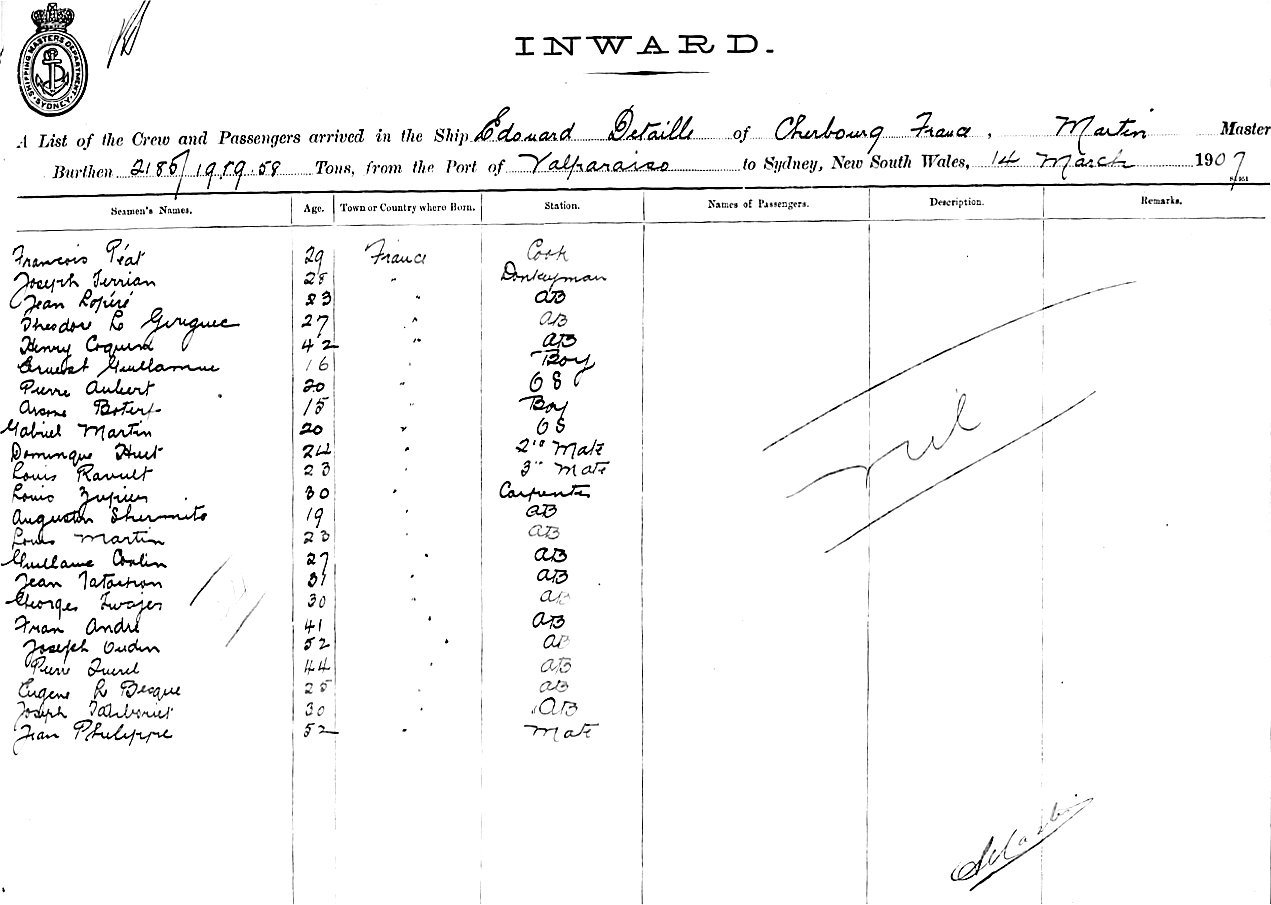 SHIPPING MASTERS DEPARTMENT SYDNEY
INWARD.
A List of the Crew and Passengers arrived in the Ship Edouard Detaille of Cherbourg France, Martin Master
Burthen 2185/1959.58 Tons, from the Port of Valparaiso to Sydney, New South Wales, 14 March 1907
Seamen's Names. Age. Town or Country where Born. Station. Names of Passengers. Description. Remarks.
Francois Péat 29 France Cook
Joseph Terrian 28 " Donkeyman
Jean 23 " AB
Theodore Le 27 " AB
Henry 42 " AB
Ernest Guillamme 16 Boy
Pierre Aubert 20 " OS
Boterf 15 " Boy
Gabriel Martin 20 " OS
Dominique Huet 24 " 2nd Mate
Louis Rault 23 " 3rd Mate
Louis 30 " Carpenter
Augustin 19 " AB
Louis Martin 23 " AB
Guillaume 27 " AB
Jean 31 " AB
Georges 30 " AB
Fran André 41 " AB
Joseph Oudin 52 " AB
Pierre Querel 44 " AB
Eugene Le Besque 25 " AB
Joseph 30 " AB
Jean Philippe 52 " Mate
nil